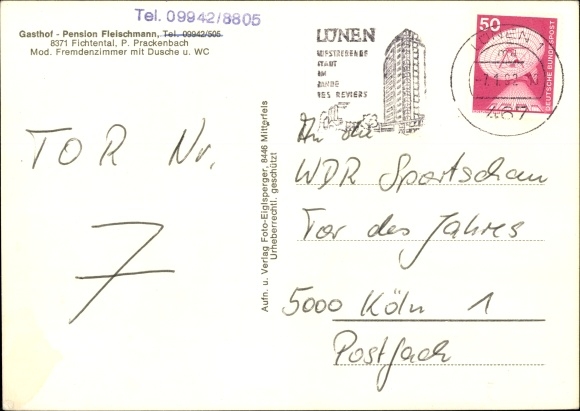 Tel. 09942/8805
Gasthof - Pension Fleischmann, Tel. 09942/505
8371 Fichtental, P. Prackenbach
Mod. Fremdenzimmer mit Dusche u. WC
TOR Nr.
7
Aufn. u. Verlag Foto-Eiglsperger, 8446 Mitterfels
Urheberrechtl. geschützt
LÜNEN
AUFSTREBENDE
STADT
AM
RANDE
DES REVIERS
50
DEUTSCHE BUNDESPOST
LÜNEN 1
-7.1.82-
467
An die
WDR Sportschau
Tor des Jahres
5000 Köln 1
Postfach